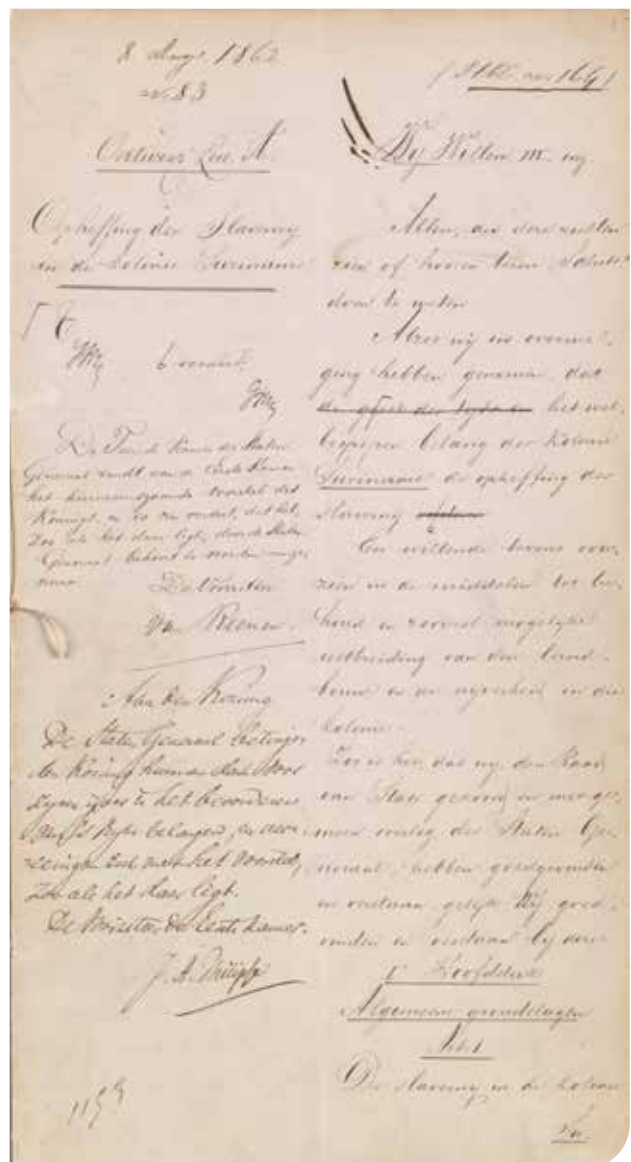 8 Aug. 1862
no. 83
Ontwerp Litt. A
Opheffing der Slaverny
in de Kolonie Suriname
De Tweede Kamer der Staten
Generaal zendt aan de Eerste Kamer
het hiernevensgaande voorstel des
Konings, en is van oordeel, dat het,
zoo als het daar ligt, door de Staten
Generaal behoort te worden aange-
nomen.
De Voorzitter
Van Reenen.
Aan den Koning
De Staten Generaal betuigen
den Koning hunnen dank voor
Zijnen ijver in het bevorderen
van 's Rijks belangen, en vere-
enigen zich met het voorstel,
zoo als het daar ligt.
De Voorzitter der Eerste Kamer.
J. A. Philipse
115
Wy Willem III. enz.
Allen, die deze zullen
zien of hooren lezen, Salut!
doen te weten
Alzoo wij in overwe-
ging hebben genomen, dat
de geest der tyden en het wel-
begrepen belang der Kolonie
Suriname de opheffing der
slaverny
En willende tevens voor-
zien in de middelen tot be-
houd en zooveel mogelyke
uitbreiding van den land-
bouw en de nyverheid in die
kolonie.
Zoo is het, dat wy, den Raad
van State gehoord, en met ge-
meen overleg der Staten Ge-
neraal, hebben goedgevonden
en verstaan, gelyk Wy goed-
vinden en verstaan by deze
1e Hoofdstuk
Algemeene grondslagen
Art. 1
De slaverny in de kolonie